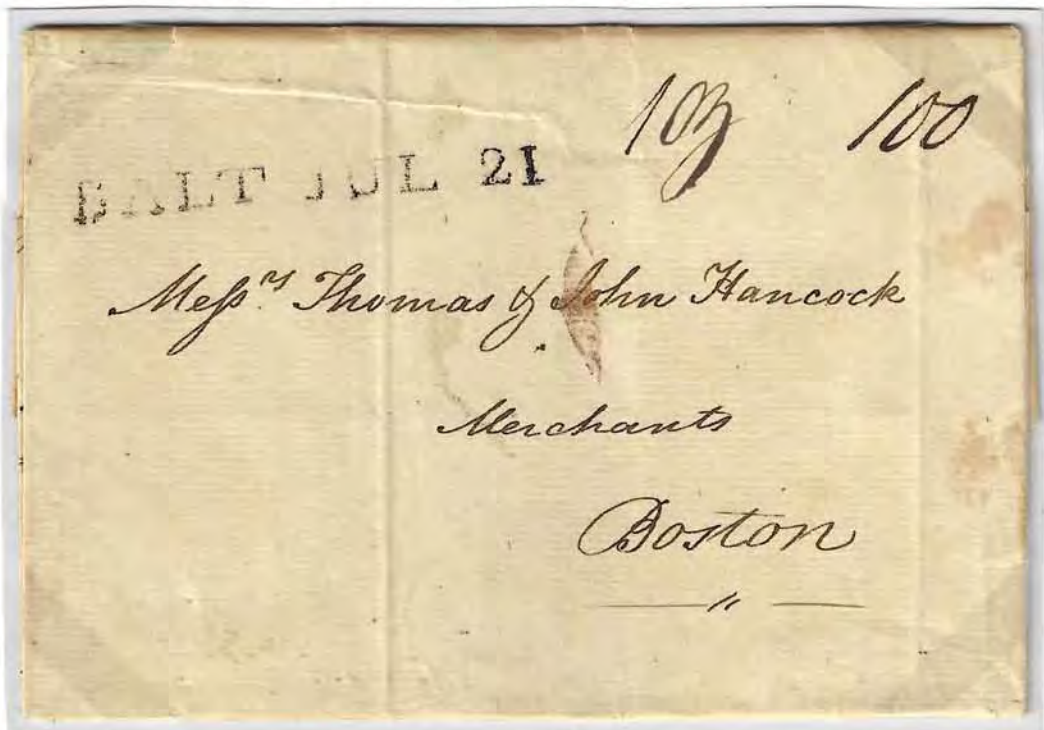 100
BALT JUL 21
Meſs.rs Thomas & John Hancock
Merchants
Boston